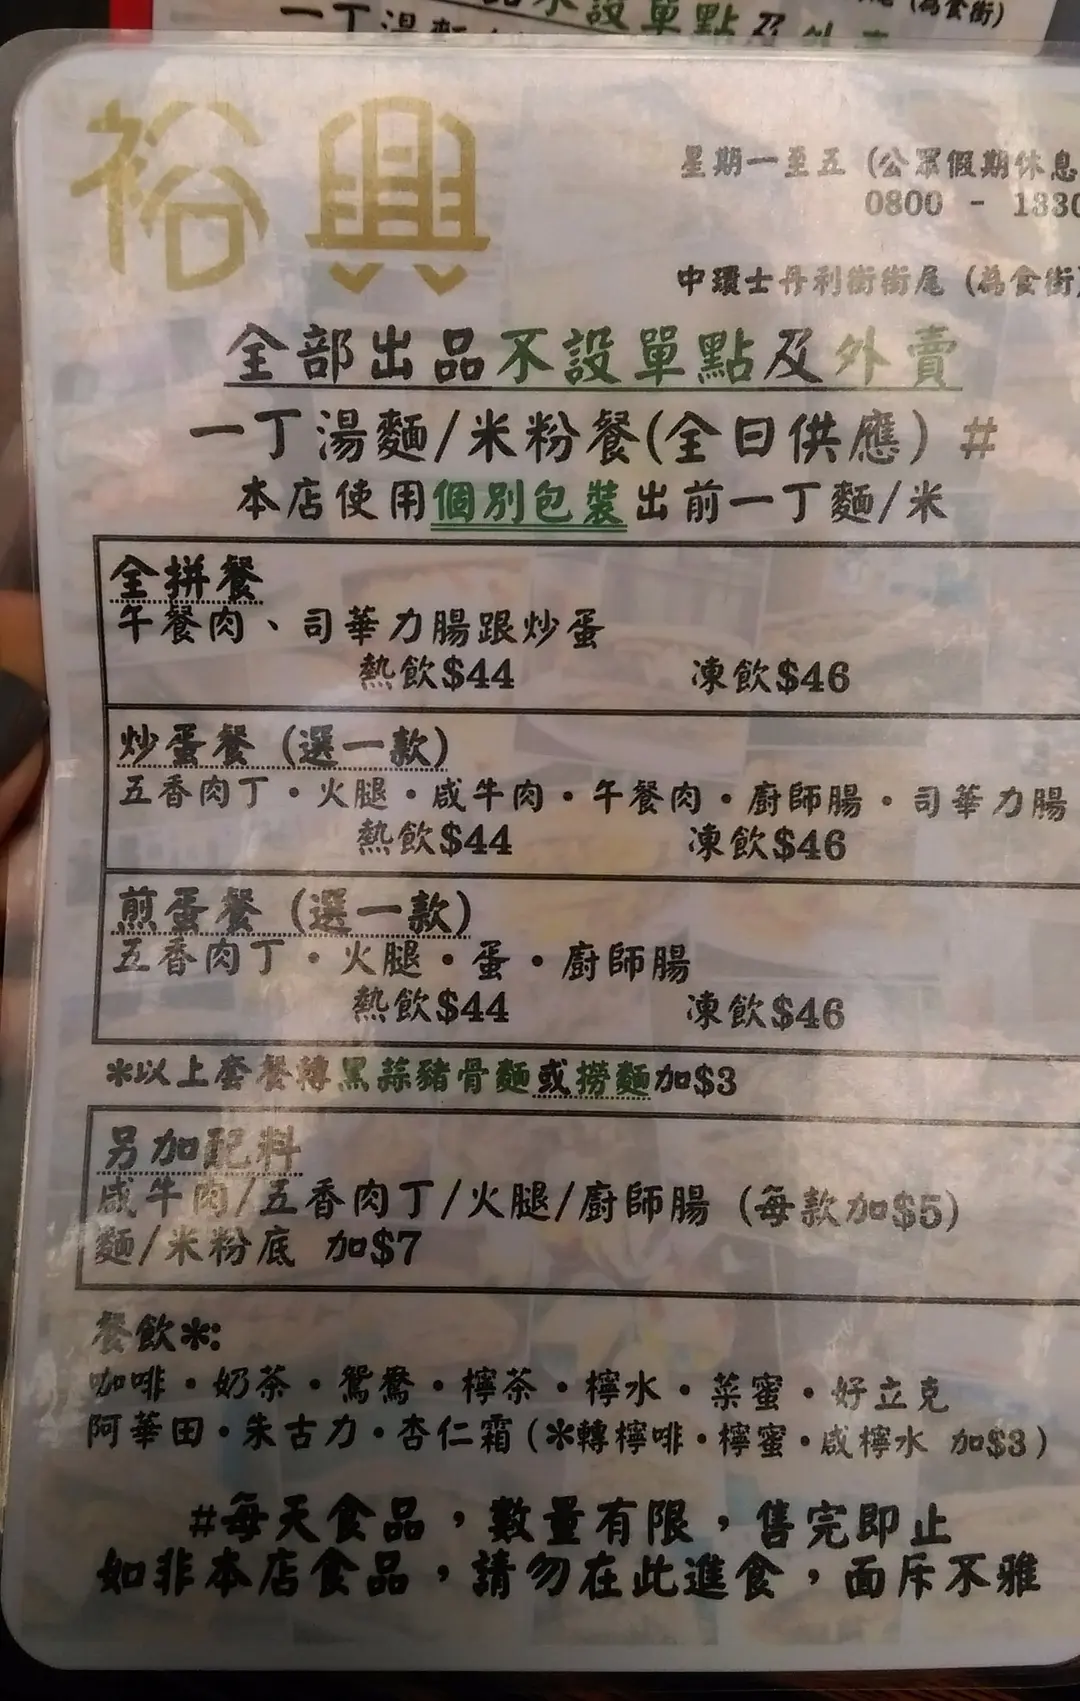 一丁湯麵/
不設單點及外賣
(為食街)
裕興
星期一至五 (公眾假期休息
0800 - 1830
中環士丹利街街尾 (為食街)
全部出品不設單點及外賣
一丁湯麵/米粉餐(全日供應) #
本店使用個別包裝出前一丁麵/米
全拼餐
午餐肉、司華力腸跟炒蛋
熱飲$44 凍飲$46
炒蛋餐 (選一款)
五香肉丁·火腿·咸牛肉·午餐肉·廚師腸·司華力腸
熱飲$44 凍飲$46
煎蛋餐 (選一款)
五香肉丁·火腿·蛋·廚師腸
熱飲$44 凍飲$46
*以上套餐轉黑蒜豬骨麵或撈麵加$3
另加配料
咸牛肉/五香肉丁/火腿/廚師腸 (每款加$5)
麵/米粉底 加$7
餐飲*:
咖啡·奶茶·鴛鴦·檸茶·檸水·菜蜜·好立克
阿華田·朱古力·杏仁霜(*轉檸啡·檸蜜·咸檸水 加$3)
#每天食品，數量有限，售完即止
如非本店食品，請勿在此進食，面斥不雅